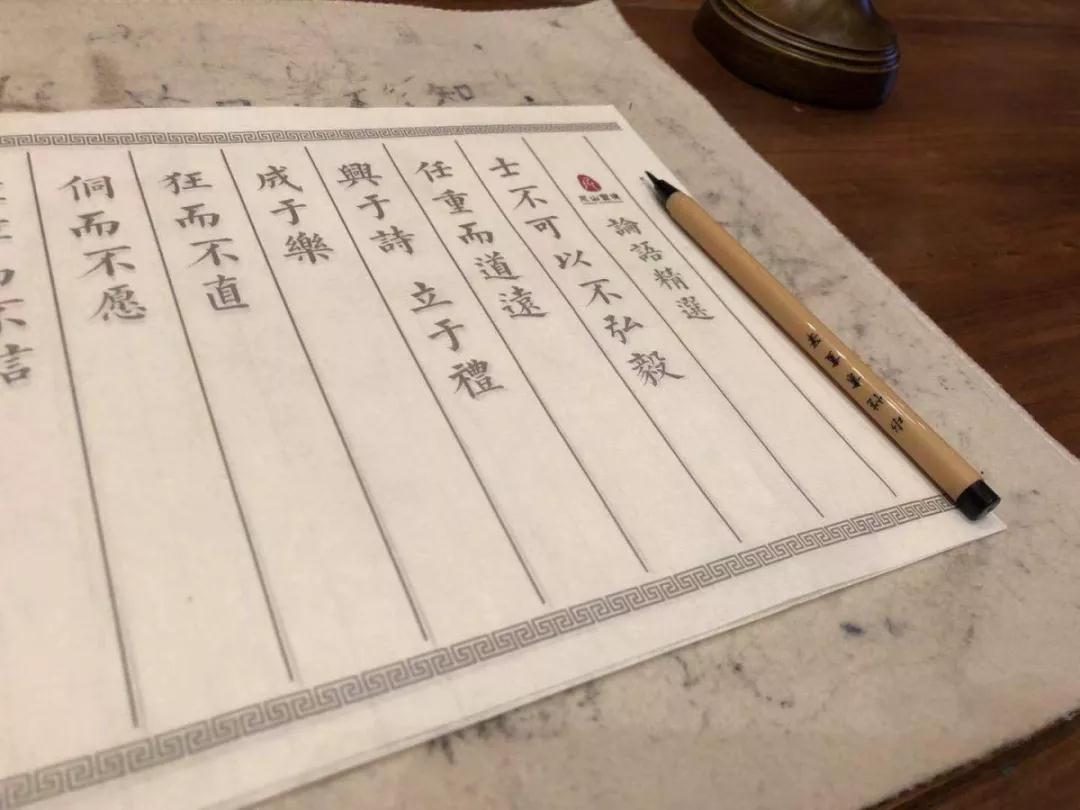 論語精選
士不可以不弘毅
任重而道遠
興于詩 立于禮
成于樂
狂而不直
侗而不愿
不言